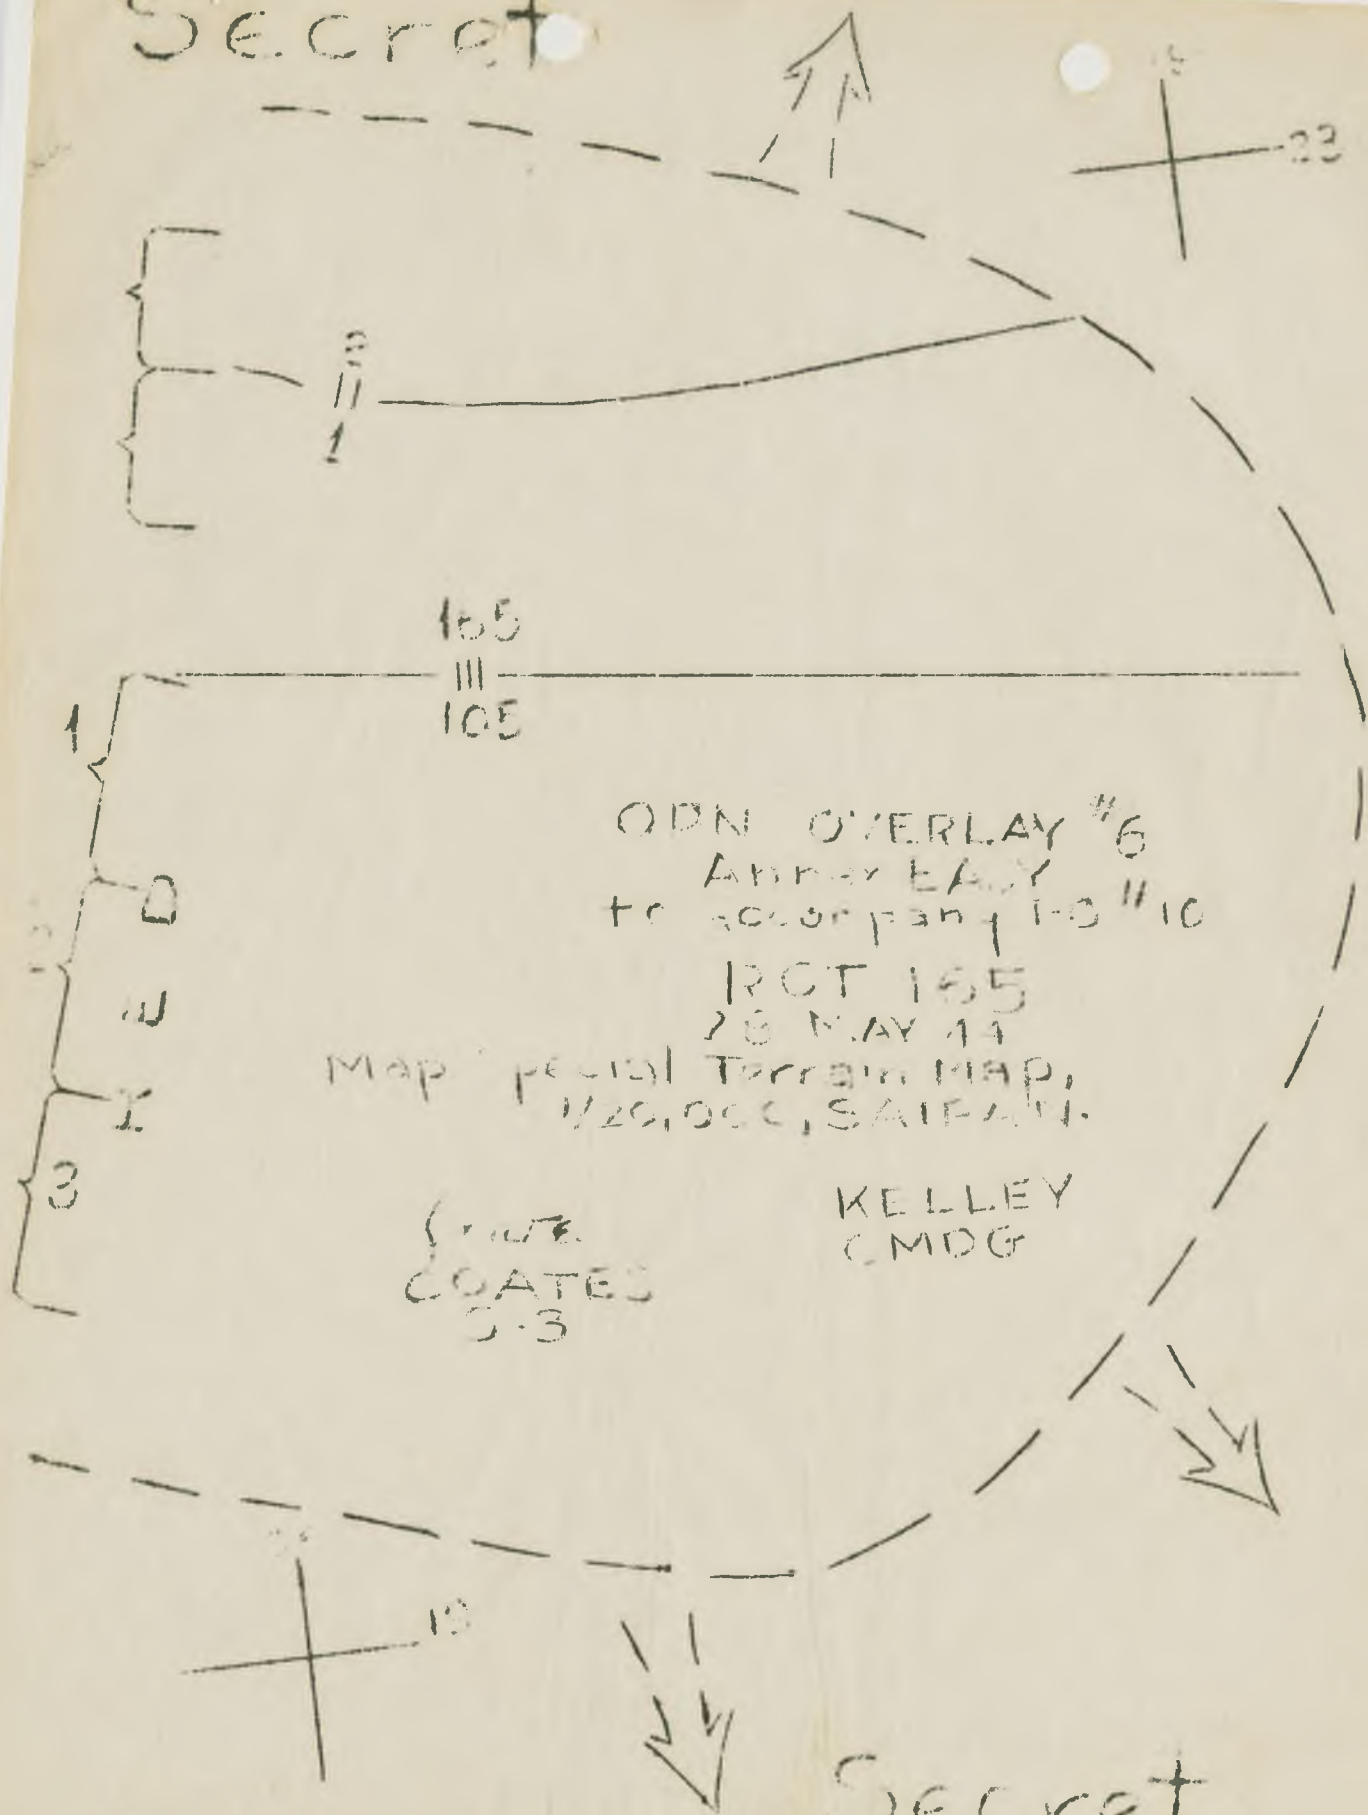 Secret
23
2
||
1
165
|||
105
1
OPN OVERLAY #6
D
Annex EASY
to accompany F-O #10
RCT 165
E
28 MAY 44
Map Special Terrain MAP,
I
1/20,000, SAIPAN.
3
KELLEY
CMDG
COATES
S-3
Secret